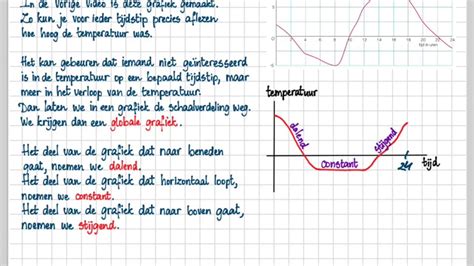 In de vorige video is deze grafiek gemaakt.
Zo kun je voor ieder tijdstip precies aflezen
hoe hoog de temperatuur was.
Het kan gebeuren dat iemand niet geïnteresseerd
is in de temperatuur op een bepaald tijdstip, maar
meer in het verloop van de temperatuur.
Dan laten we in een grafiek de schaalverdeling weg.
We krijgen dan een globale grafiek.
Het deel van de grafiek dat naar beneden
gaat, noemen we dalend.
Het deel van de grafiek dat horizontaal loopt,
noemen we constant.
Het deel van de grafiek dat naar boven gaat,
noemen we stijgend.
2 4 6 8 10 12 14 16 18 20 22 24
tijd in uren
temperatuur
dalend
constant
stijgend
tijd
24